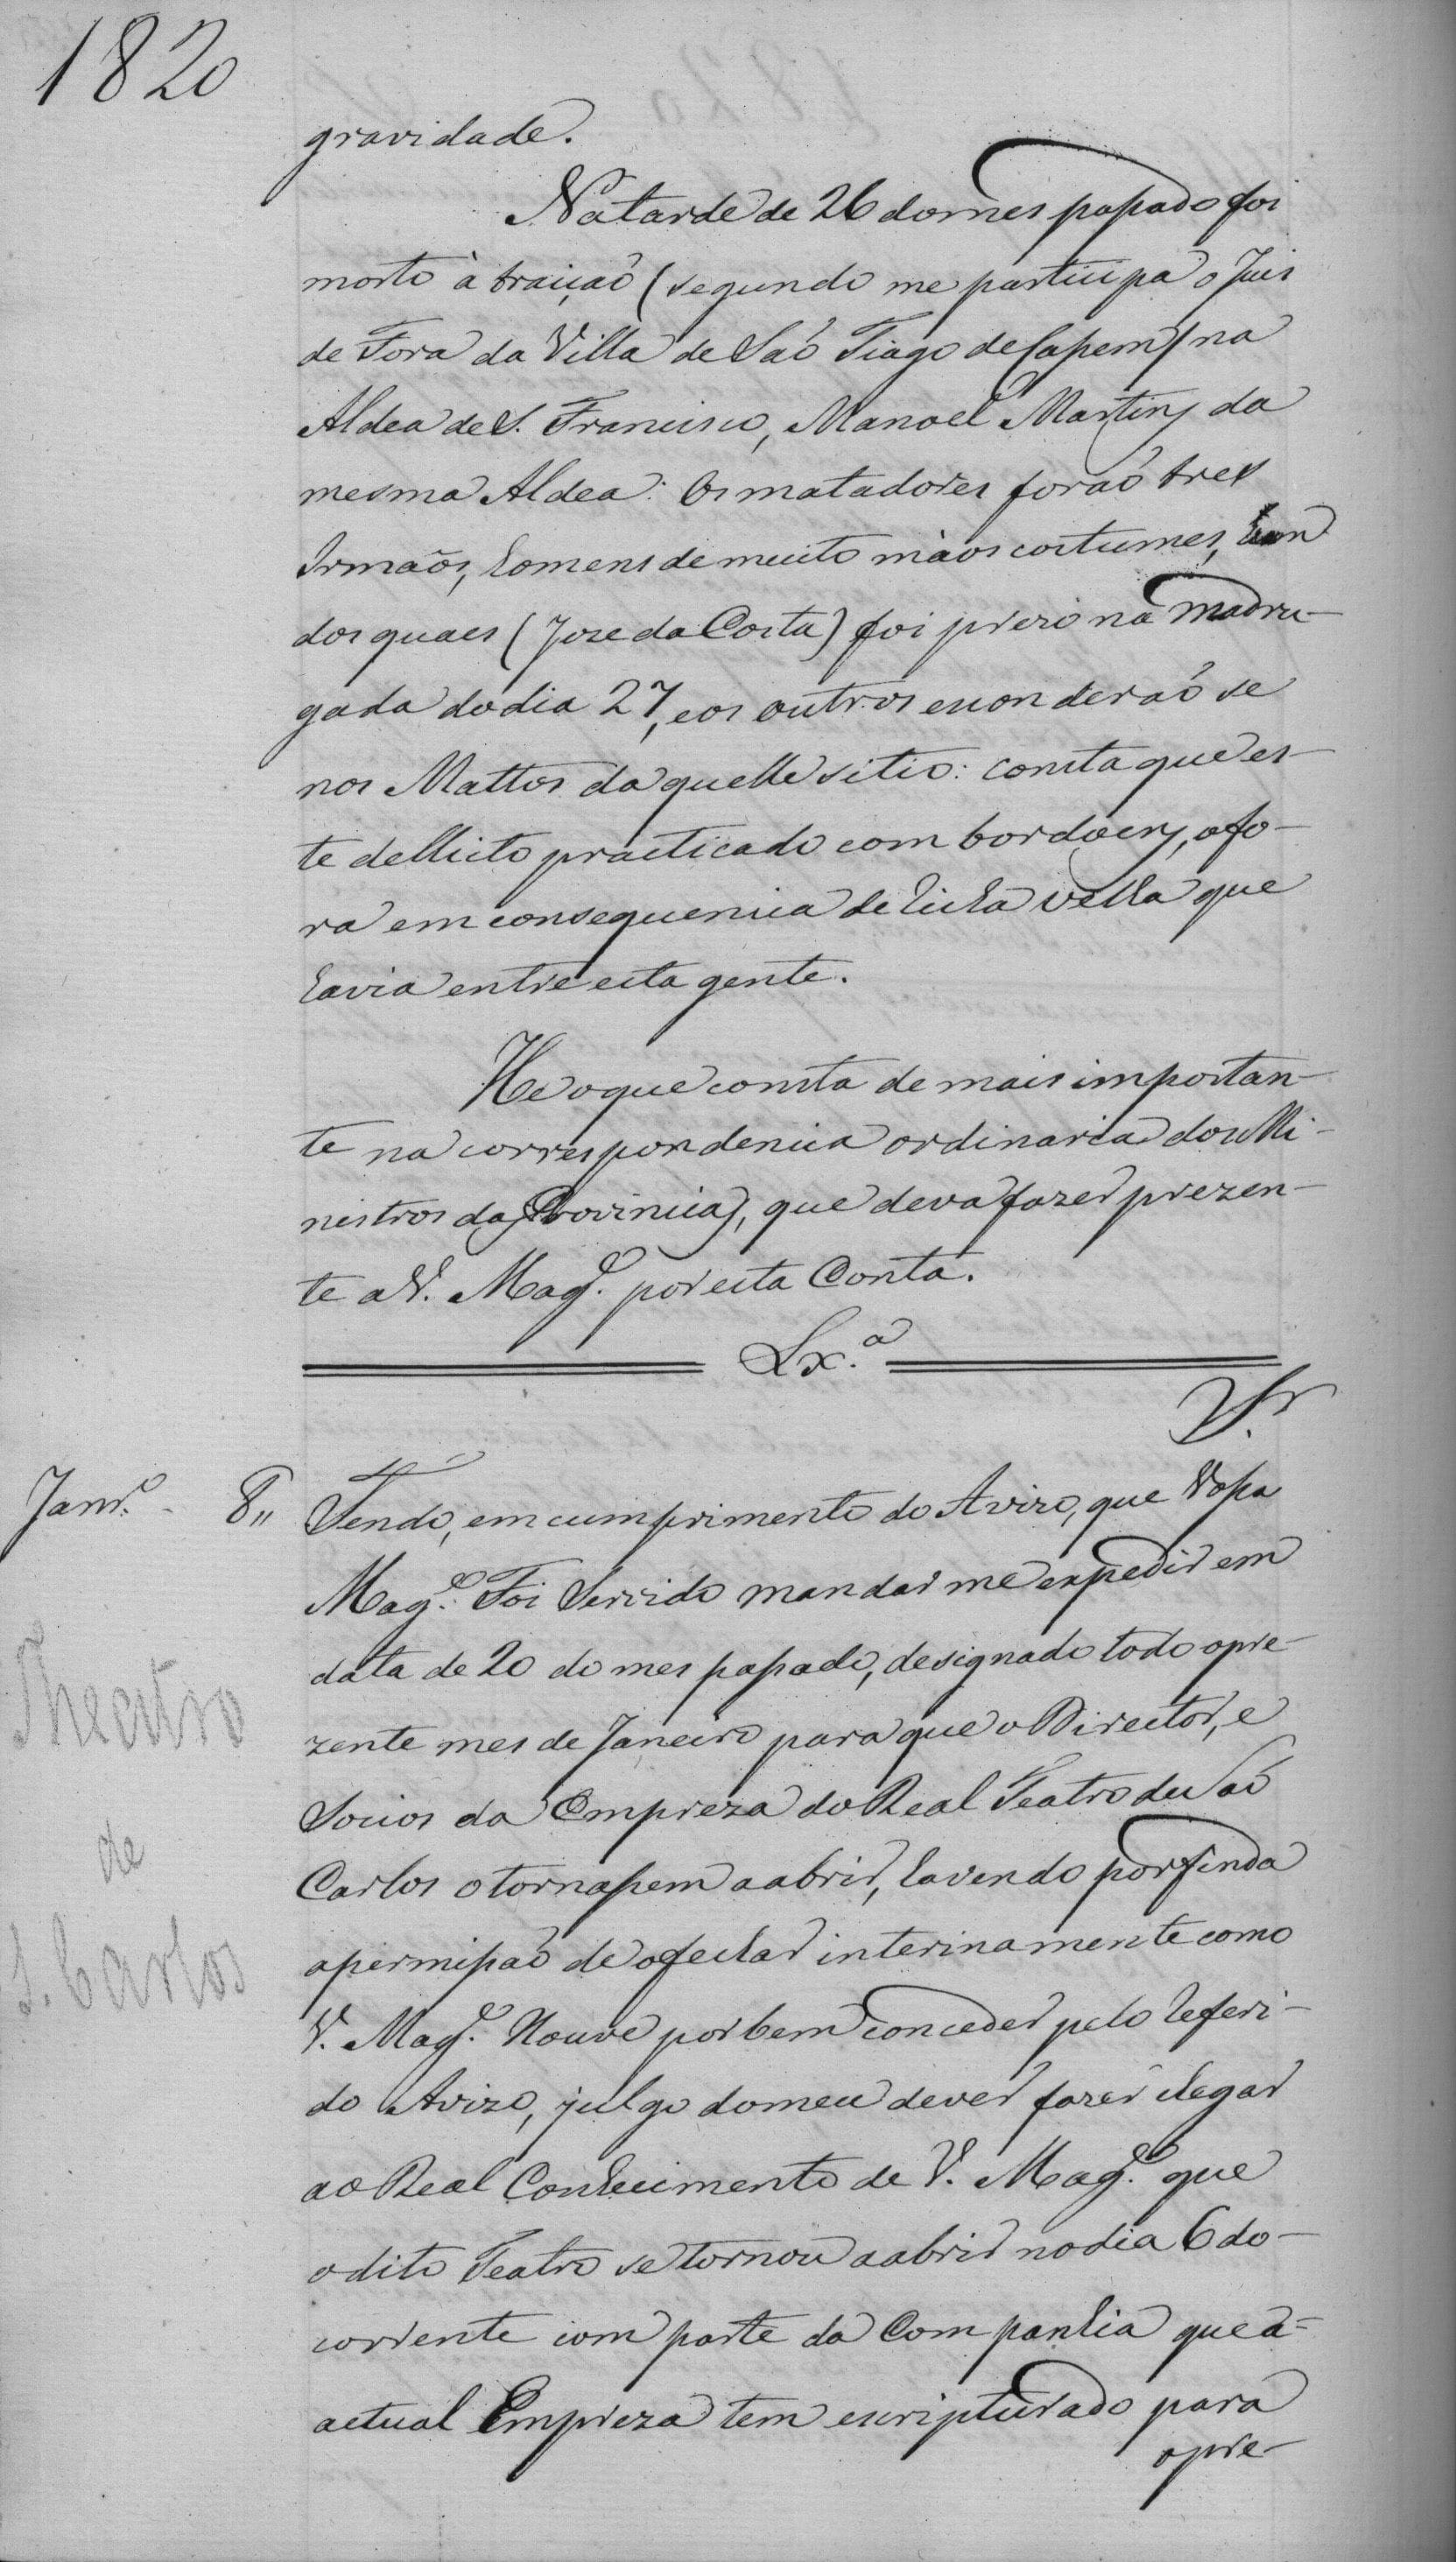 1820
gravidade.
Na tarde de 26 do mes passado foi
morto à traiçaõ (segundo me participa o Juis
de Fora da Villa de Saõ Tiago de Cassem) na
Aldea de S. Francisco, Manoel Martins da
mesma Aldea: Os matadores foraõ tres
Irmaõs, homens de muito màos costumes, hum
dos quaes (Joze da Costa) foi prezo na madru-
gada do dia 27, e os outros esconderaõ se
nos Mattos daquelle sitio: consta que es-
te dellicto practicado com bordoens, o fo-
ra em consequencia de rixa velha que
havia entre esta gente.
He o que consta de mais importan-
te na correspondencia ordinaria dos Mi-
nistros das Provincias, que deva fazer prezen-
te a V. Mag.e por esta Conta.
Lx.a
Sr.
Janr.o 8,, Tendo, em cumprimento do Avizo, que Vossa
Mag.e Foi Servido mandar me expedir em
data de 20 do mes passado, designado todo o pre-
zente mes de Janeiro para que o Director, e
Socios da Empreza do Real Teatro de Saõ
Carlos o tornassem a abrir, havendo por finda
a permissaõ de o fechar interinamente como
V. Mag.e Houve por bem conceder pelo referi-
do Avizo, julgo do meu dever fazer chegar
ao Real Conhecimento de V. Mag.e que
o dito Teatro se tornou a abrir no dia 6 do-
corrente com parte da Companhia que a=
actual Empreza tem escripturado para
o pre-
Theatro
de
S. Carlos